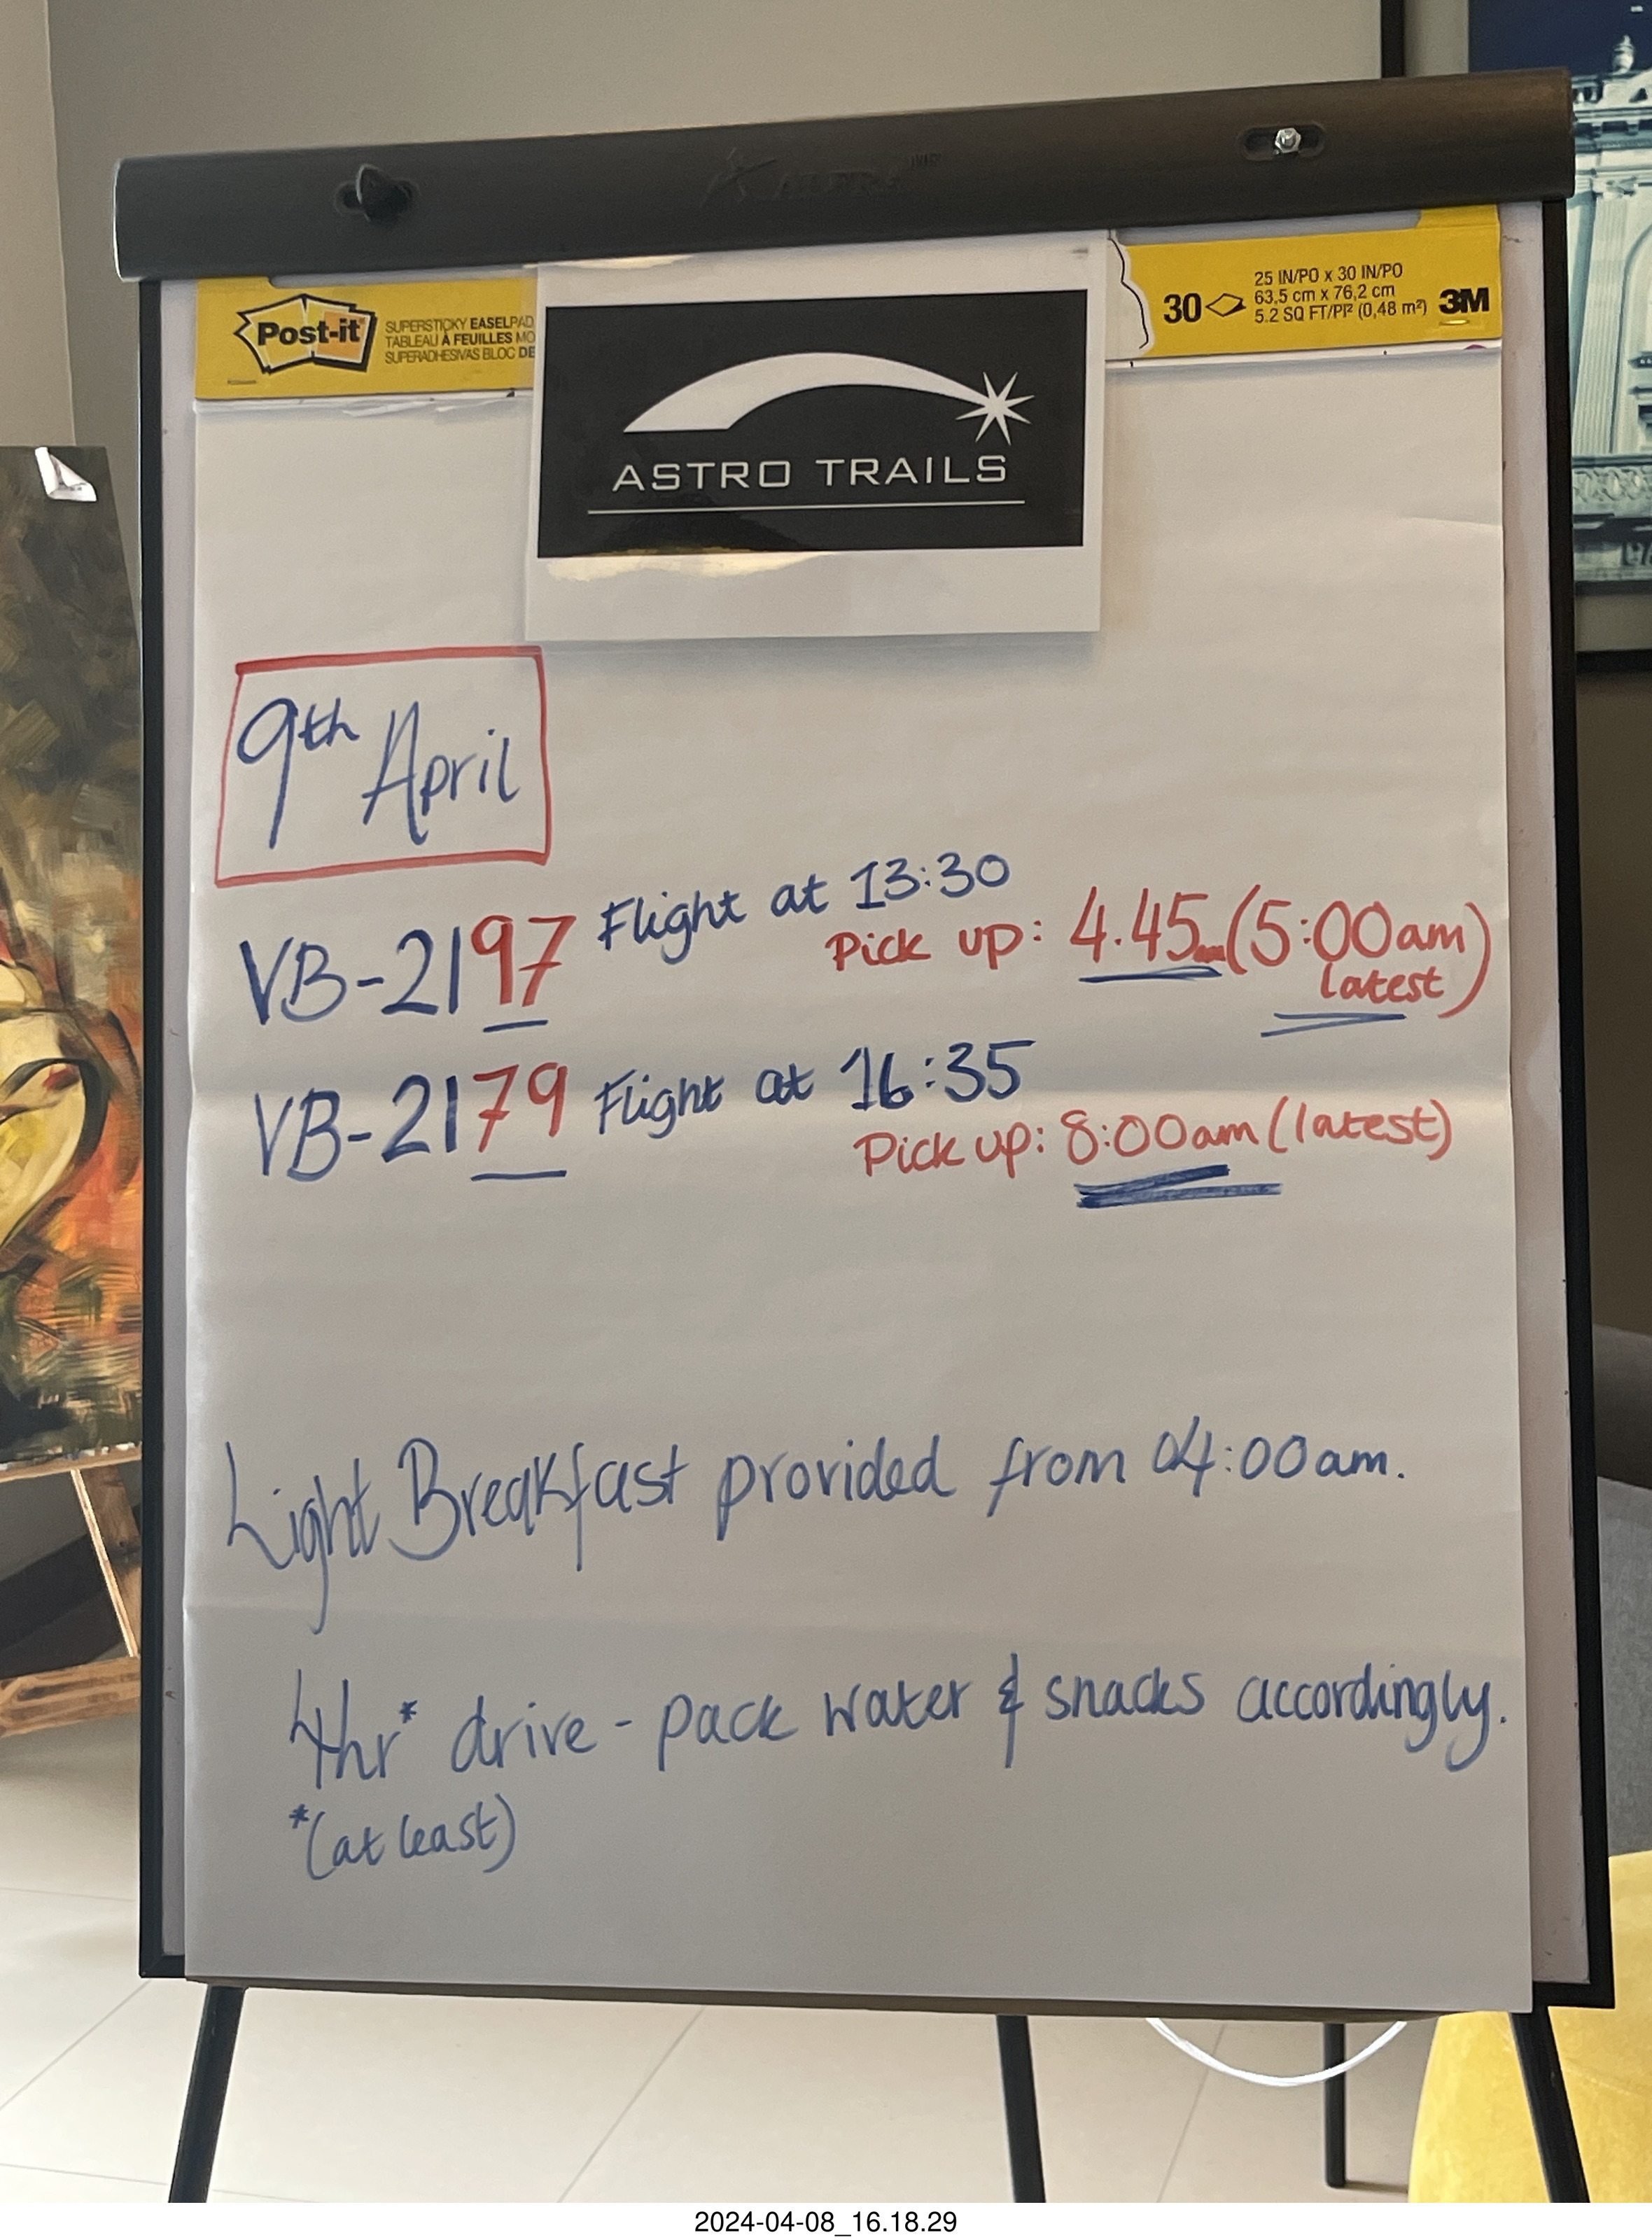 Post-it
SUPERSTICKY EASELPAD
TABLEAU À FEUILLES MO
SUPERADHESIVAS BLOC DE
30
25 IN/PO x 30 IN/PO
63,5 cm x 76,2 cm
5.2 SQ FT/PI² (0,48 m²)
3M
ASTRO TRAILS
9th April
VB-2197 Flight at 13:30
Pick up: 4.45am (5:00am
latest)
VB-2179 Flight at 16:35
Pick up: 8:00am (latest)
Light Breakfast provided from 04:00am.
4hr* drive - pack water & snacks accordingly.
*(at least)
2024-04-08_16.18.29